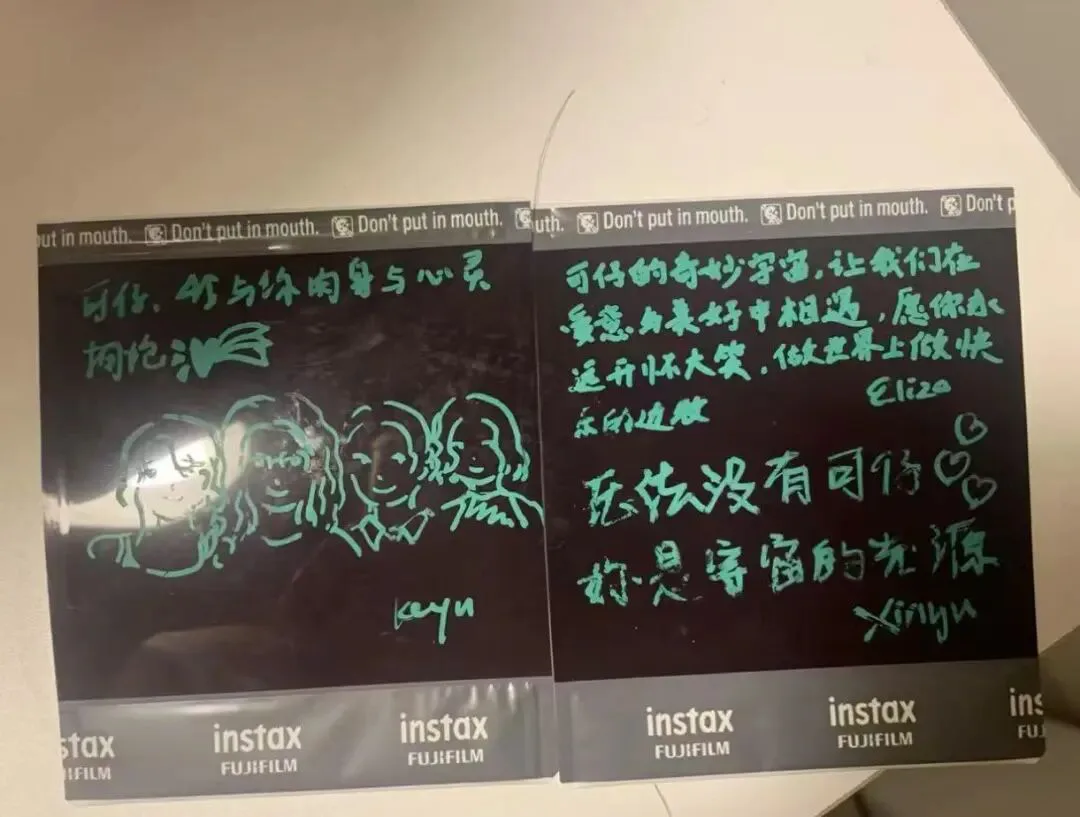 ut in mouth. Don't put in mouth. Don't put in mouth.
可仔、 与你肉身与心灵
拥抱
keyu
stax instax instax
FUJIFILM FUJIFILM FUJIFILM
uth. Don't put in mouth. Don't put in mouth. Don't p
可仔的奇妙宇宙,让我们在
爱意与美好中相遇,愿你永
远开怀大笑,做世界上做快
乐的边牧
Eliza
无法没有可仔
你是宇宙的光源
Xinyu
instax instax ins
FUJIFILM FUJIFILM FU